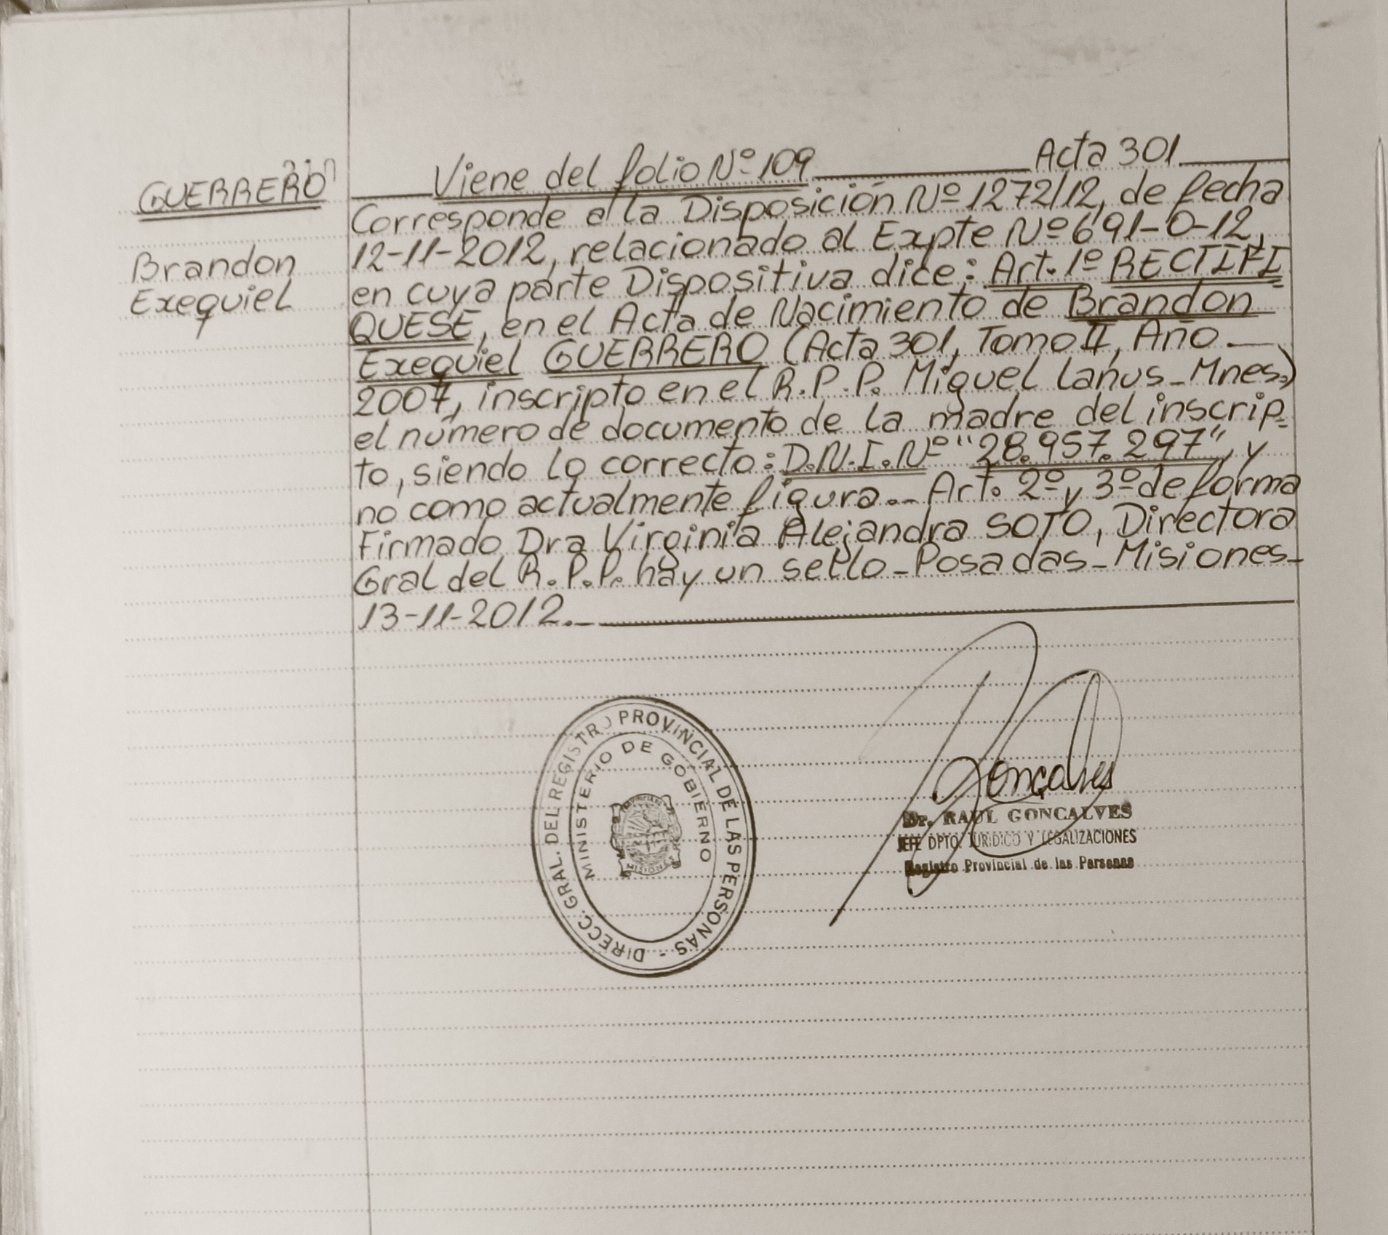 GUERRERO
Brandon
Exequiel
Viene del folio Nº 109 Acta 301
Corresponde a la Disposición Nº 1272/12, de fecha
12-11-2012, relacionado al Expte Nº 691-0-12,
en cuya parte Dispositiva dice: Art. 1º RECTIFI
QUESE, en el Acta de Nacimiento de Brandon
Exequiel GUERRERO (Acta 301, Tomo II, Año
2007, inscripto en el R.P.P. Miguel Lanus-Mnes.)
el número de documento de la madre del inscrip-
to, siendo lo correcto: D.N.I. Nº "28.957.297", y
no como actualmente figura.- Art. 2º y 3º de forma
Firmado Dra Virginia Alejandra SOTO, Directora
Gral del R.P.P. hay un sello-Posadas-Misiones-
13-11-2012.-
DIRECC. GRAL. DEL REGISTRO PROVINCIAL DE LAS PERSONAS -
MINISTERIO DE GOBIERNO
Goncalves
Dr. RAUL GONCALVES
JEFE DPTO. JURIDICO Y LEGALIZACIONES
Registro Provincial de las Personas